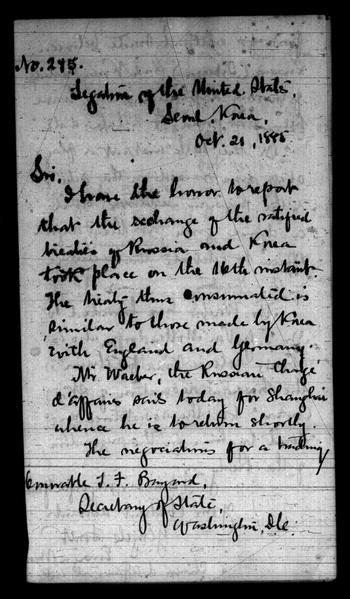 No. 245.
Legation of the United States,
Seoul, Korea,
Oct. 21, 1885
Sir:
I have the honor to report
that the exchange of the ratified
treaties of Russia and Korea
took place on the 16th instant.
The treaty thus consummated is
similar to those made by Korea
with England and Germany.
Mr. Waeber, the Russian Chargé
d'affaires sails today for Shanghai
whence he is to return shortly.
The negociations for a
Honorable T. F. Bayard,
Secretary of State,
Washington, D.C.